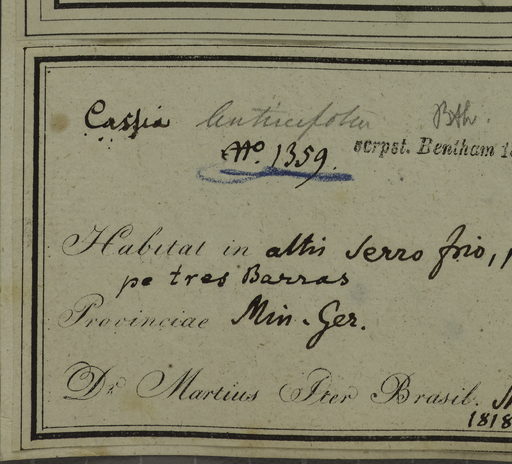 Cassia Bth.
No. 1359.
scrpst. Bentham 18
Habitat in altis Serro frio,
pe tres Barras
Provinciae Min. Ger.
Dr. Martius Iter Brasil.
1818